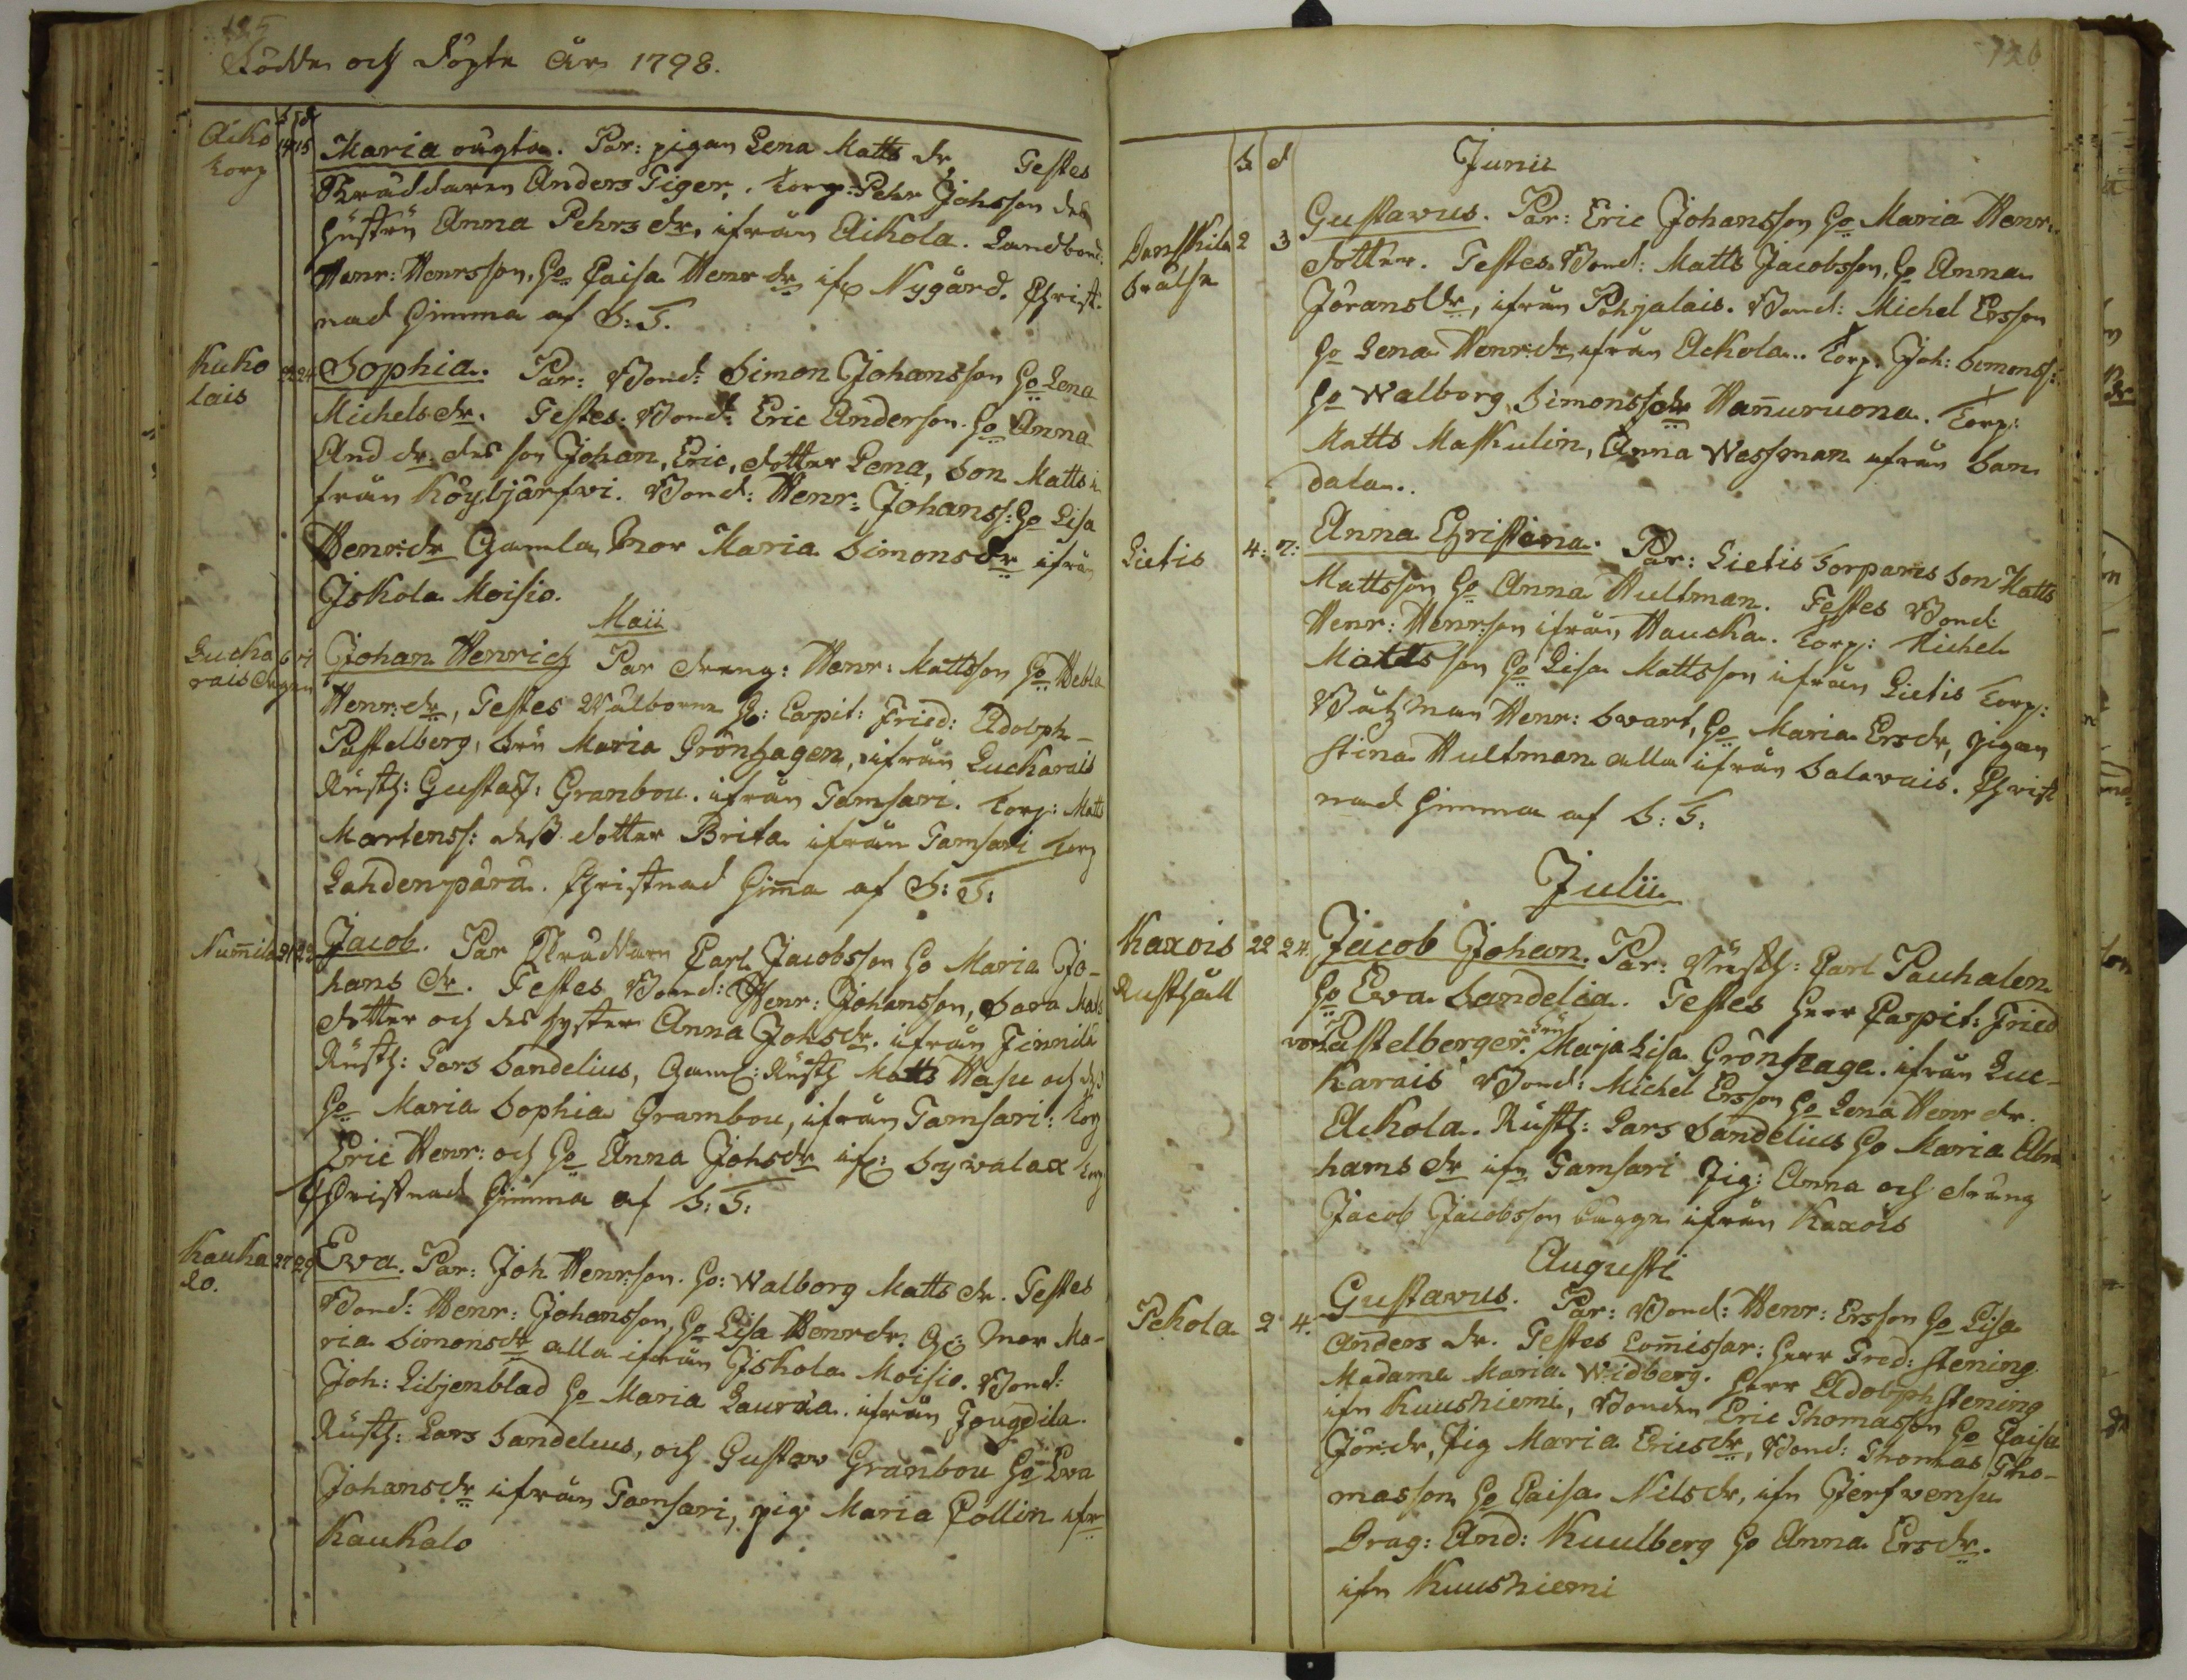 125
Födde och döpte År 1798.
Aiko 14 15 Maria oägta. Par: pigan Lena Matts dr, Testes
torp Skräddaren Anders Tiger, torp: Pehr Johsson des
hustru Anna Pehrs dr, ifrån Aikola. Landbond:
Henr: Henrsson, Ho Caisa Henr dr ifr Nygård. Christ-
nad himma af S: T.
Kuko 24 Sophia. Par: Bond: Simon Johansson Ho Lena
lais Michels dr. Testes: Bond: Eric Anderson Ho Anna
And dr des son Johan, Eric, dotter Lena, Son Matts i
från Köybjärfwi. Bond: Henr: Johanss: Ho Lisa
Henr: dr Gamla Mor Maria Simons dr ifrån
Iskola Moisio.
Maii
Lucka 6 Johan Henrich Par dreng: Henr: Mattsson Ho Hebla
rais Henr: dr, Testes Wälborne H: Capit: Fried: Adolph
Pastelberg, Fru Maria Grönhagen, ifrån Luckarais
Rusth: Gustaf: Granbou. ifrån Tamsari. Torp: Matts
Martenss: dess dotter Brita ifrån Tamsari torp
Lahdenpärä. Christnad himma af S: T:
Num̄ila 21 23 Jacob. Par Skräddare Carl Jacobsson Ho Maria Jo-
hans dr. Testes Bond: Henr: Johansson, Sara Matts
dotter och des syster Anna Johs dr. ifrån Finnilä
Rusth: Lars Sandelius, Gaml: Rusth Matts Hasu och des
Ho Maria Sophia Grambou, ifrån Tamsari: Torp
Eric Henr: och Ho Anna Johs dr ifr: Sywalax torp
Christnad himma af S: T:
Kauka 27 29 Ewa. Par: Joh Henrsson. Ho: Walborg Matts dr. Testes
lo. Bond: Henr: Johansson, Ho Lisa Henr dr. Gl: Mor Ma-
ria Simons dr alla ifrån Iskola Moisio. Bond:
Joh: Liljenblad Ho Maria Laura. ifrån Jougdila.
Rusth: Lars Sandelius, och Gustav Granbou Ho Ewa
Johans dr ifrån Tamsari, pig Maria Collin ifr
Kaukalo
126
S d Junii
Danskila 2 3 Gustavus. Par: Eric Johansson Ho Maria Henr
Frälse dotter. Testes Bond: Matts Jacobsson, Ho Anna
Jörans dr, ifrån Pohjalais. Bond: Michel Ersson
Ho Lena Henr: dr, ifrån Ackola. Torp: Joh: Simonss:
Ho Walborg Simonss dr Han̄uruona. Torp:
Matts Maskulin, Anna Wessman ifrån San
data.
Lietis 4: 7: Anna Christina. Par: Lietis Torpares Son Matts
Mattsson Ho Anna Hultman. Testes Bond:
Henr: Henrsson ifrån Haucka. Torp: Michel
Mattsson Ho Lisa Mattsson ifrån Lietis Torp:
Båtzman Henr: Swart, Ho Maria Ers dr, pigan
Stina Hultman alla ifrån Salavais. Christ
nad himma af S: T:
Julii
Kaxois 22 24 Jacob Johan. Par: Rusth: Carl Pauhalen
Rusthåll Ho Ewa Sandelia. Testes Herr Capit: Fried
von Pastelberger. Fru Maja Lisa Grönhage. ifrån Luc-
karais Bond: Michel Ersson Ho Lena Henr dr.
Ackola. Rusth: Lars Sandelius Ho Maria Abra
hams dr ifn Tamsari Pig: Anna och dräng
Jacob Jacobsson ifrån Kaxois
Augusti
Pekola 2 4. Gustavus. Par: Bond: Henr: Ersson Ho Lisa
Anders dr. Testes Com̄issar: Herr Fred: Stening
Madame Maria Widberg. Herr Adolph Stening
ifn Kuushiemi, Bonden Eric Thomasson Ho Caisa
Jör: dr, Pig Maria Erics dr, Bond: Thomas Tho-
masson Ho Caisa Nils dr, ifn Jerfwensu
Drag: And: Kuulberg Ho Anna Ers dr.
ifn Kuushiemi